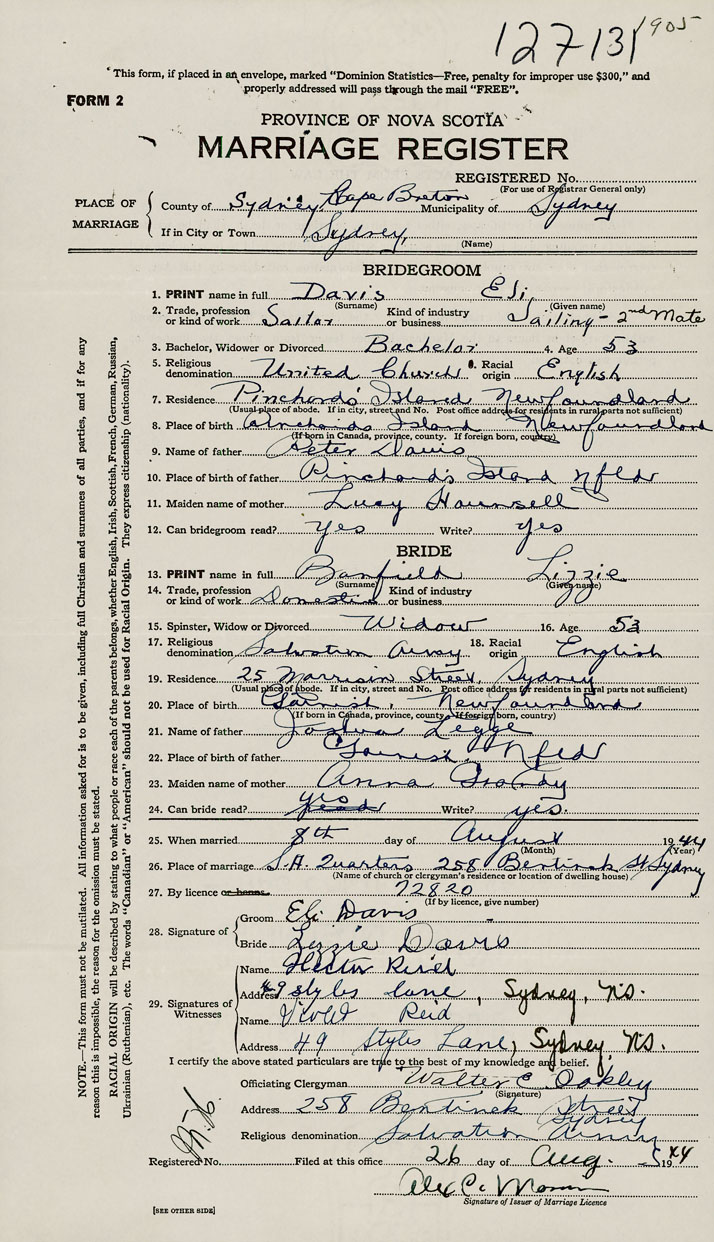 127131 905
"This form, if placed in an envelope, marked "Dominion Statistics—Free, penalty for improper use $300," and
properly addressed will pass through the mail "FREE".
FORM 2
PROVINCE OF NOVA SCOTIA
MARRIAGE REGISTER
REGISTERED No.
(For use of Registrar General only)
PLACE OF MARRIAGE
County of Sydney, Cape Breton Municipality of Sydney
If in City or Town Sydney,
(Name)
BRIDEGROOM
1. PRINT name in full Davis Eli
(Surname) (Given name)
2. Trade, profession or kind of work Sailor Kind of industry or business Sailing - 2nd Mate
3. Bachelor, Widower or Divorced Bachelor 4. Age 53
5. Religious denomination United Church 6. Racial origin English
7. Residence Pinchards Island Newfoundland
(Usual place of abode. If in city, street and No. Post office address for residents in rural parts not sufficient)
8. Place of birth Pinchards Island Newfoundland
(If born in Canada, province, county. If foreign born, country)
9. Name of father Peter Davis
10. Place of birth of father Pinchard's Island Nfld
11. Maiden name of mother Lucy Hounsell
12. Can bridegroom read? yes Write? yes
BRIDE
13. PRINT name in full Banfield Lizzie
(Surname) (Given name)
14. Trade, profession or kind of work Domestic Kind of industry or business
15. Spinster, Widow or Divorced Widow 16. Age 53
17. Religious denomination Salvation Army 18. Racial origin English
19. Residence 25 Morrison Street, Sydney
(Usual place of abode. If in city, street and No. Post office address for residents in rural parts not sufficient)
20. Place of birth Garnish, Newfoundland
(If born in Canada, province, county. If foreign born, country)
21. Name of father Joshua Legge
22. Place of birth of father Garnish, Nfld
23. Maiden name of mother Anna Grandy
24. Can bride read? yes Write? yes.
25. When married 8th day of August 1944
(Month) (Year)
26. Place of marriage S.A. Quarters 258 Bentinck St Sydney
(Name of church or clergyman's residence or location of dwelling house)
27. By licence or banns 72820
(If by licence, give number)
28. Signature of
Groom Eli Davis
Bride Lizzie Davis
29. Signatures of Witnesses
Name Hector Reid
Address 49 Styles Lane, Sydney, N.S.
Name Violet Reid
Address 49 Styles Lane, Sydney N.S.
I certify the above stated particulars are true to the best of my knowledge and belief.
Officiating Clergyman Walter C. Oakley
(Signature)
Address 258 Bentinck Street
Sydney
Religious denomination Salvation Army
Registered No. Filed at this office 26 day of Aug. 1944
Signature of Issuer of Marriage Licence
[SEE OTHER SIDE]
NOTE.—This form must not be mutilated. All information asked for is to be given, including full Christian and surnames of all parties, and if for any
reason this is impossible, the reason for the omission must be stated.
RACIAL ORIGIN will be described by stating to what people or race each of the parents belongs, whether English, Irish, Scottish, French, German, Russian,
Ukrainian (Ruthenian), etc. The words "Canadian" or "American" should not be used for Racial Origin. They express citizenship (nationality).